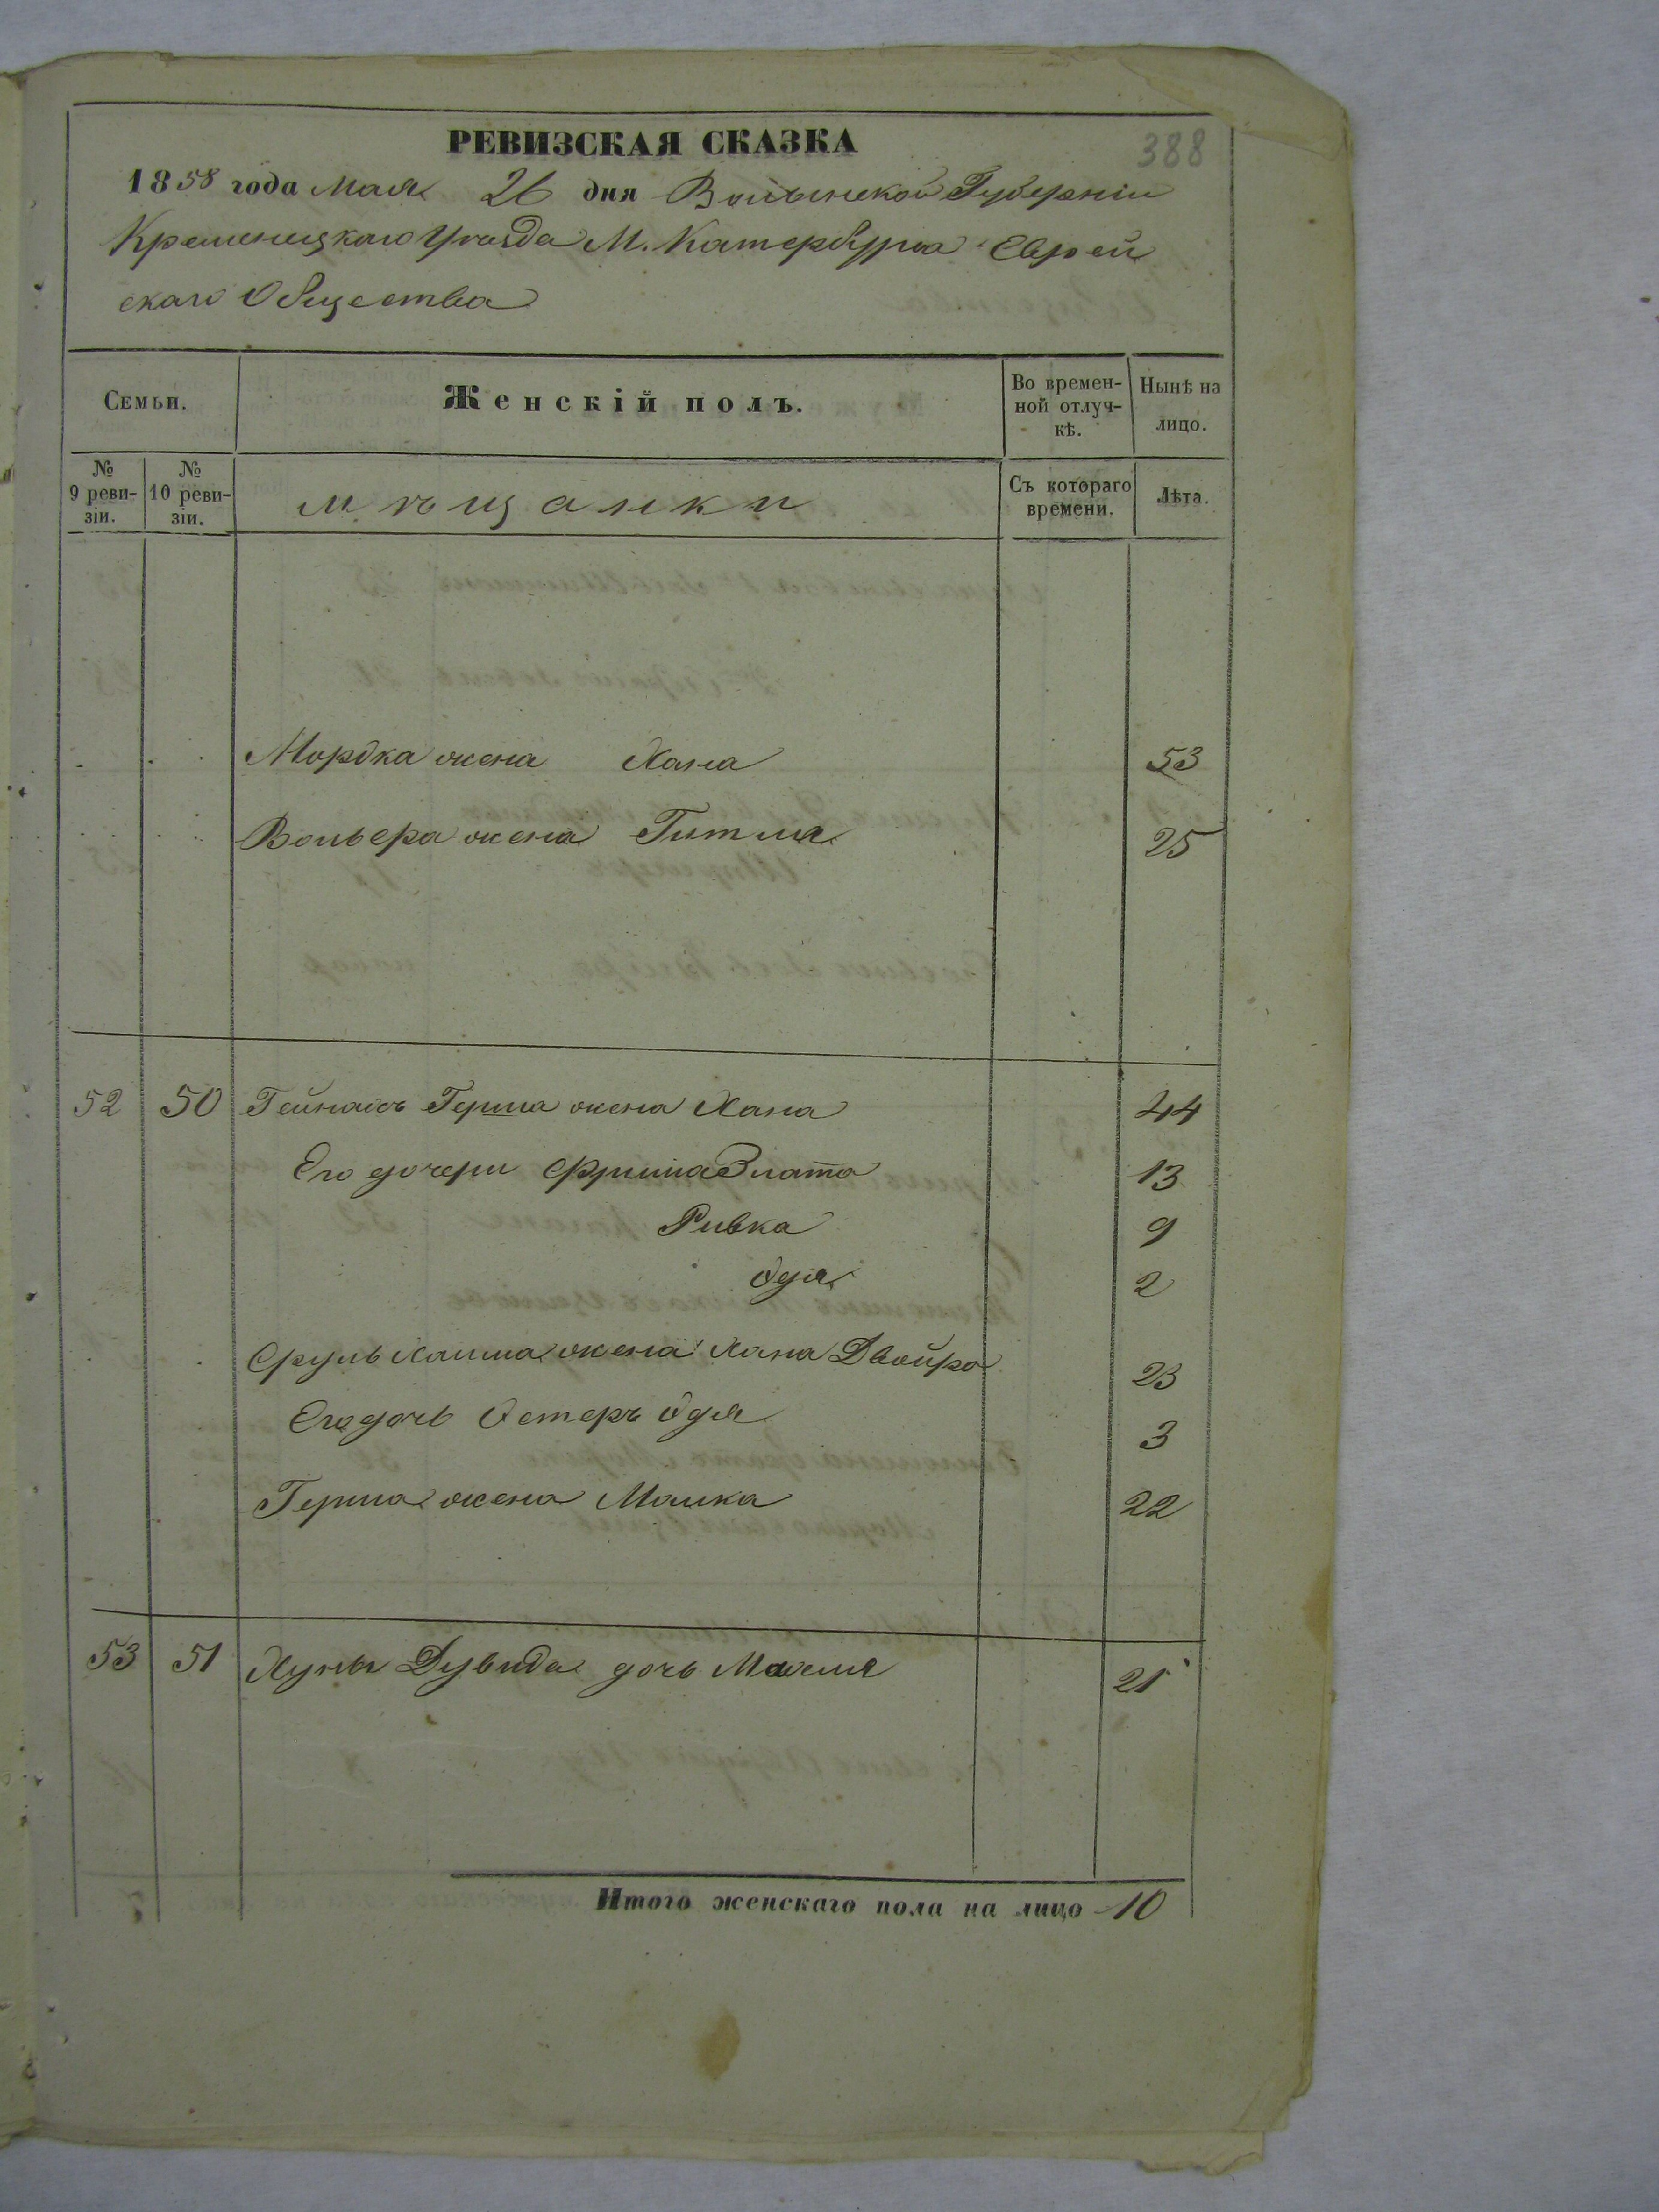 РЕВИЗСКАЯ СКАЗКА
388
1858 года Мая 26 дня Волынской Губерніи
Кременецкаго Уѣзда М. Катербурга Еврей
скаго Общества
Семьи.
Женскій полъ.
Во времен-
ной отлуч-
кѣ.
Нынѣ на
лицо.
№
9 реви-
зіи.
№
10 реви-
зіи.
мѣщанки
Съ котораго
времени.
Лѣта.
Мордка жена Хана 53
Вольера жена Гитля 25
52 50 Герша жена Хана 44
Его дочери Фрима Злата 13
Ривка 9
Одя 2
Сруль Хаима жена Хана Двойра 23
Его дочь Естеръ Одя 3
Герша жена Малка 22
53 51 Хуны Дувида дочь 21
Итого женскаго пола на лицо 10